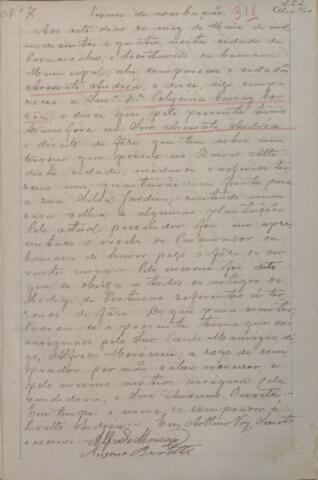 Nº 7 Termo de averbação 318
Aos oito dias do mez de Maio de mil
novecentos e quatro, nesta cidade de
Piracicaba, e Secretaria da Camara
Municipal, ahi compareceu o cidadão
Andrea, e disse, digo compa-
receu a Snrª Dª
e disse que pelo presente termo
transfere ao Snr Andréa
o direito de fôro que tem sobre um
terreno que possue no Bairro Alto
desta cidade, medindo o referido ter-
reno um quarteirão com frente para
a rua existindo uma
casa velha e algumas plantações
Pelo actual possuidor foi me apre-
sentado o recibo do Procurador da
Camara de haver pago o fôro do cor-
rente anno. Pelo mesmo foi dito
que se obriga a todos os artigos do
Codigo de Posturas referentes a ter-
renos de fôro. Do que para constar
lavrou-se o presente termo que vae
assignado pelo Snr Paulo di-
go, Alfredo a rogo do com-
prador, por não saber escrever, e
pelo mesmo motivo assigna pela
vendedora, o Snr
Em tempo: o nome do comprador é
Andrea. Eu, Arthur Vaz,
o escrevi. Alfredo